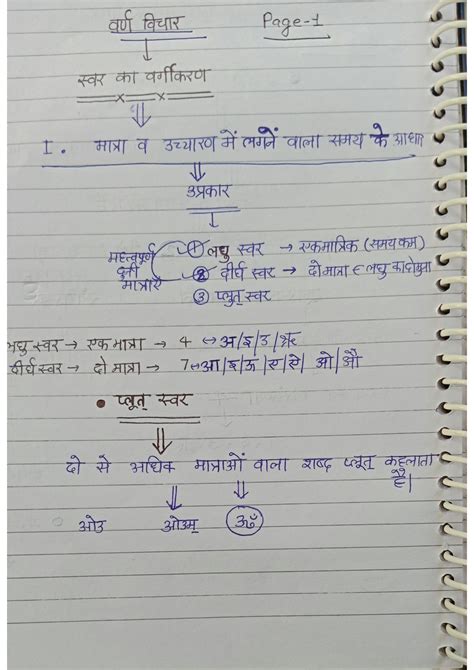 वर्ण विचार Page-1
स्वर का वर्गीकरण
I. मात्रा व उच्चारण में लगने वाला समय के आधार
3प्रकार
महत्वपूर्ण ① लघु स्वर → एकमात्रिक (समय कम)
② दीर्घ स्वर → दो मात्रा लघु का दोगुना
मात्राएं ③ प्लुत् स्वर
लघु स्वर → एक मात्रा → 4 ↔ अ/इ/उ/ऋ
दीर्घ स्वर → दो मात्रा → 7 ↔ आ/ई/ऊ/ए/ऐ/ओ/औ
• प्लुत् स्वर
दो से अधिक मात्राओं वाला शब्द प्लुत् कहलाता
है।
ओउ ओउम् ॐ